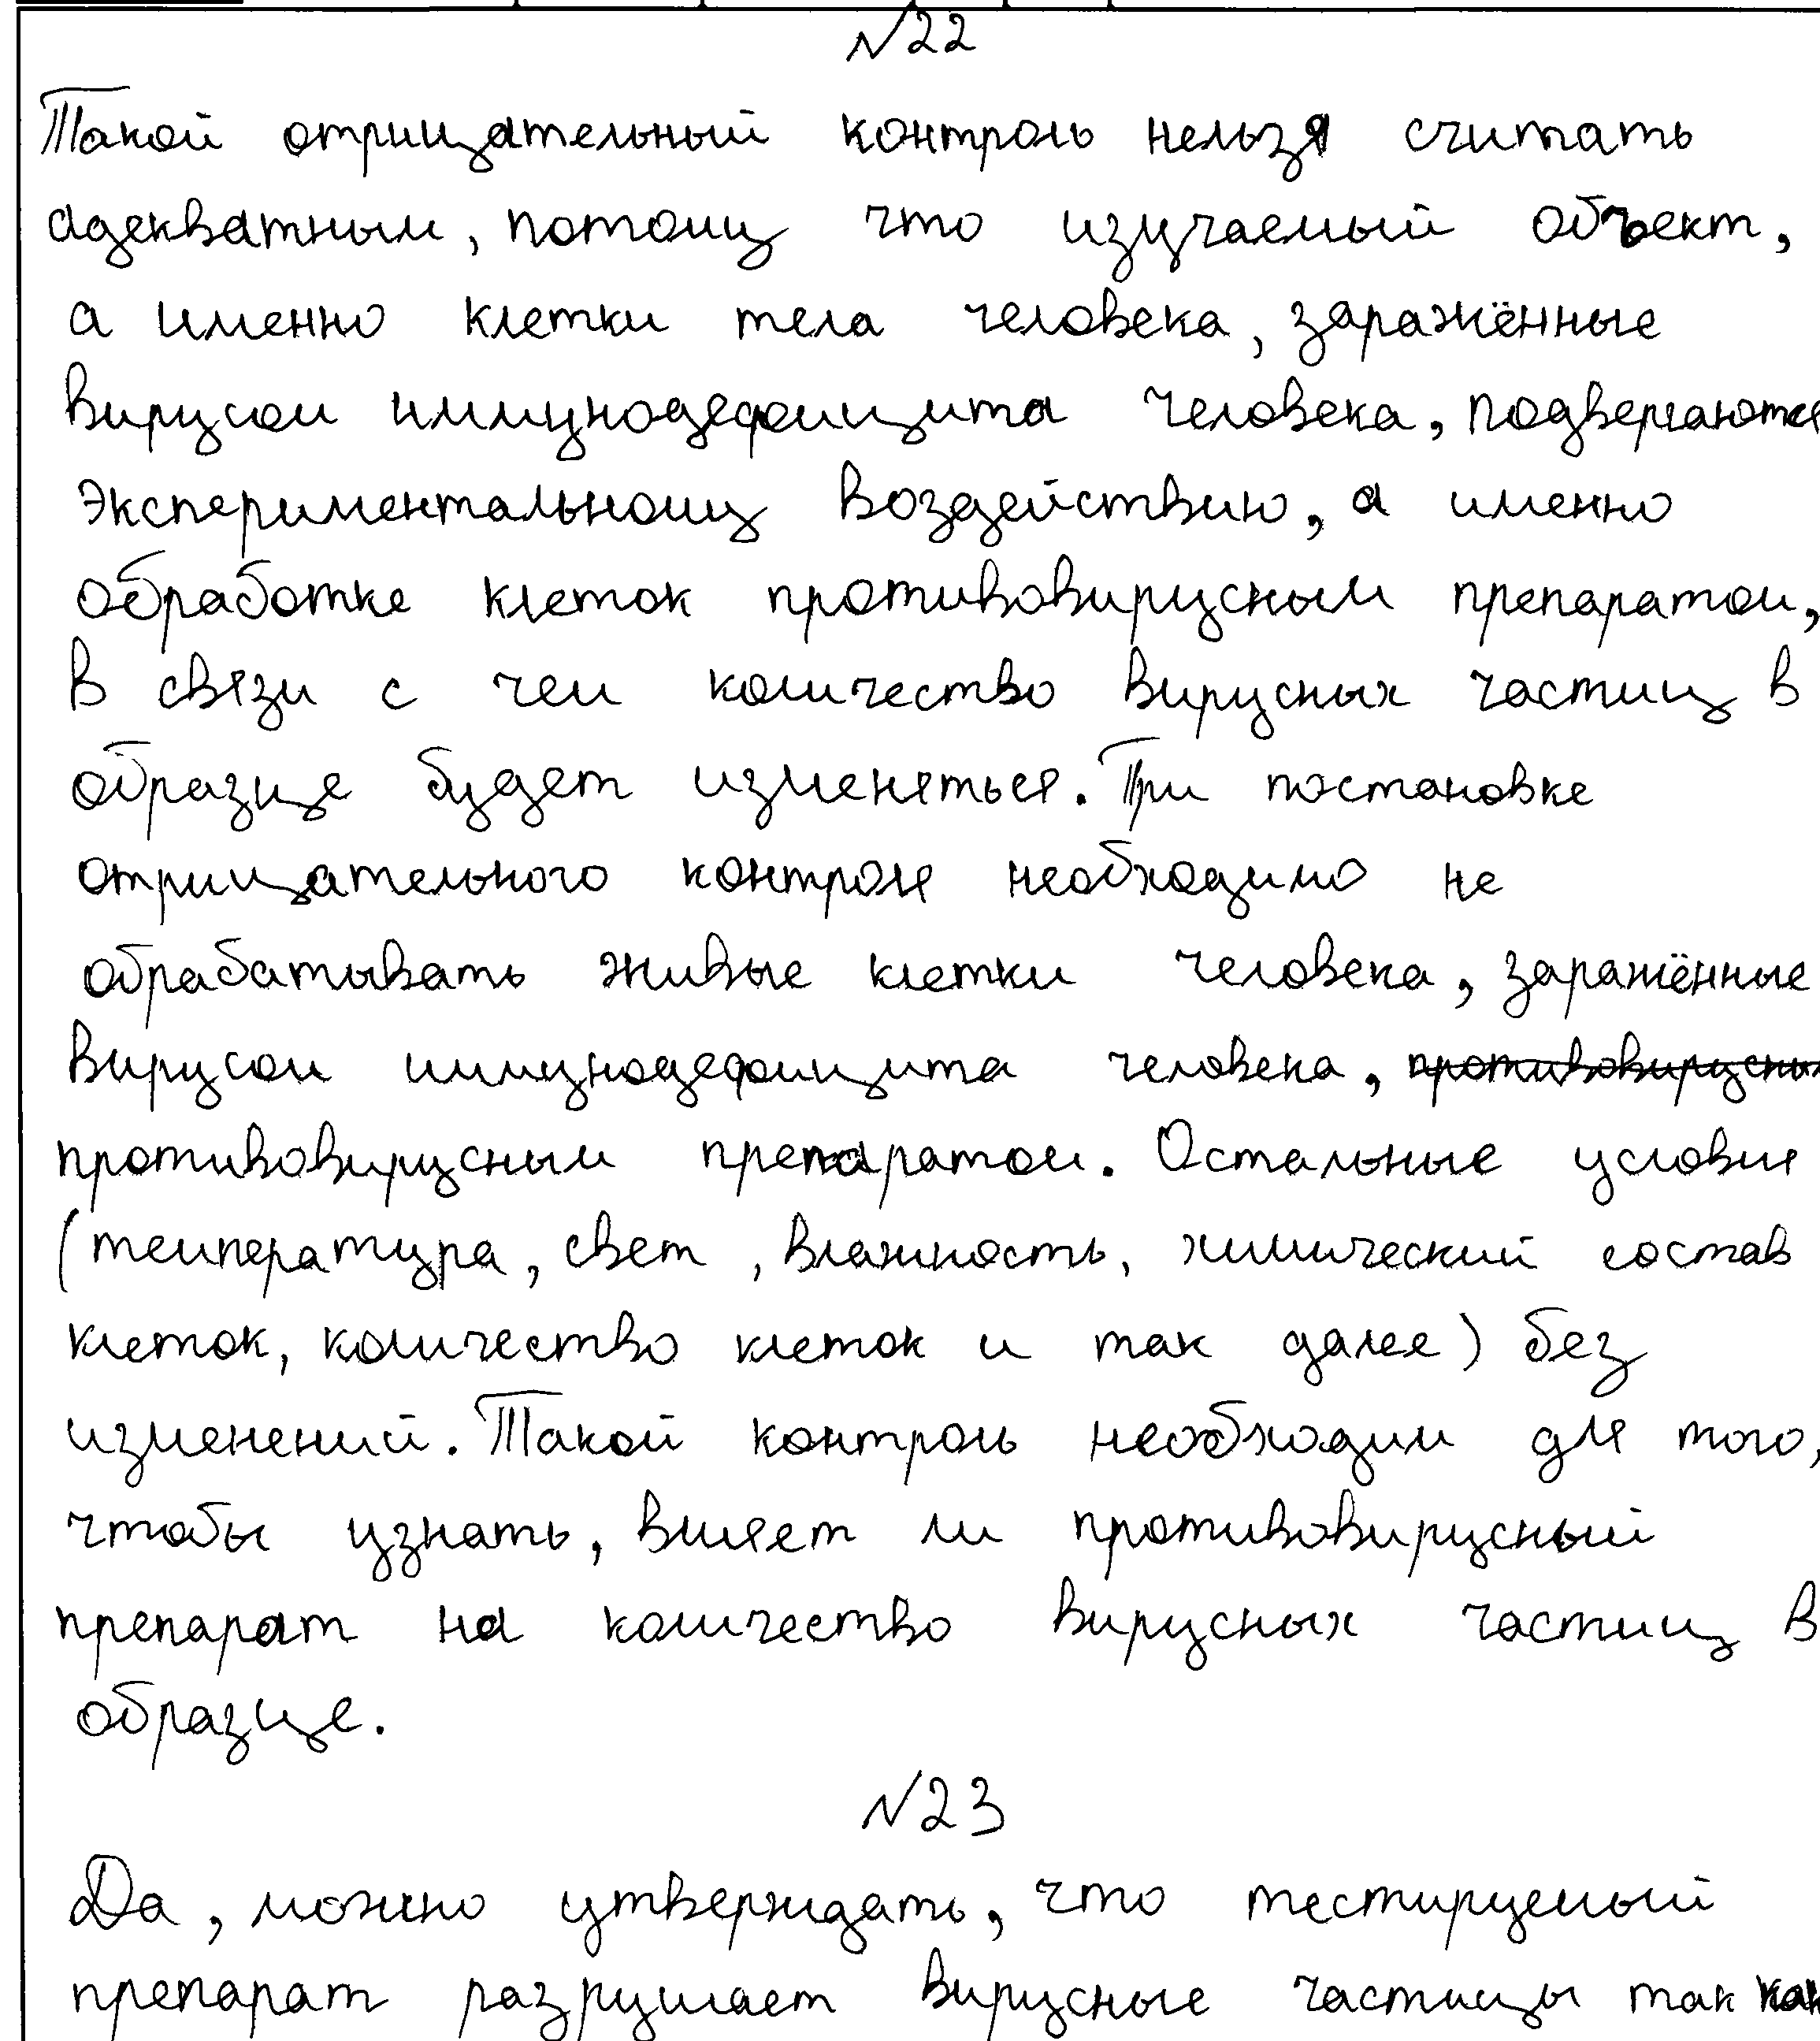 №22
Такой отрицательный контроль нельзя считать
адекватным, потому что изучаемый объект,
а именно клетки тела человека, заражённые
вирусом иммунодефицита человека, подвергаются
экспериментальному воздействию, а именно
обработке клеток противовирусным препаратом,
в связи с чем количество вирусных частиц в
образце будет изменяться. При постановке
отрицательного контроля необходимо не
обрабатывать живые клетки человека, заражённые
вирусом иммунодефицита человека, противовирусным
противовирусным препаратом. Остальные условия
(температура, свет, влажность, химический состав
клеток, количество клеток и так далее) без
изменений. Такой контроль необходим для того,
чтобы узнать, влияет ли противовирусный
препарат на количество вирусных частиц в
образце.
№23
Да, можно утверждать, что тестируемый
препарат разрушает вирусные частицы так как